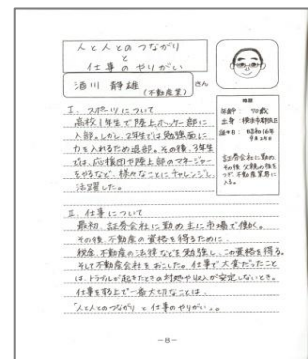 人と人とのつながり
と
仕事のやりがい
酒川 静雄 さん
(不動産業)
年齢 70歳
出身 横浜市都筑区
誕生日 昭和16年
9月25日
証券会社に勤め
その後、父親の後を
つぎ、不動産業界に
入る。
I. スポーツについて
高校1年生で陸上ホッケー部に
入部。しかし、2年生では勉強面に
力を入れるため退部。その後、3年生
では、応援団や陸上部のマネージャー
をやるなど、様々なことにチャレンジし
活躍した。
II. 仕事について
最初、証券会社に勤め主に市場で働く。
その後、不動産の資格を得るために、
税金、不動産の法律などを勉強し、この資格を得る。
そして不動産会社をおこした。仕事で大変だったこと
は、トラブルが起きたときの対処や収入が安定しないとき。
仕事をする上で一番大切なことは、
"人と人とのつながり と 仕事のやりがい"。